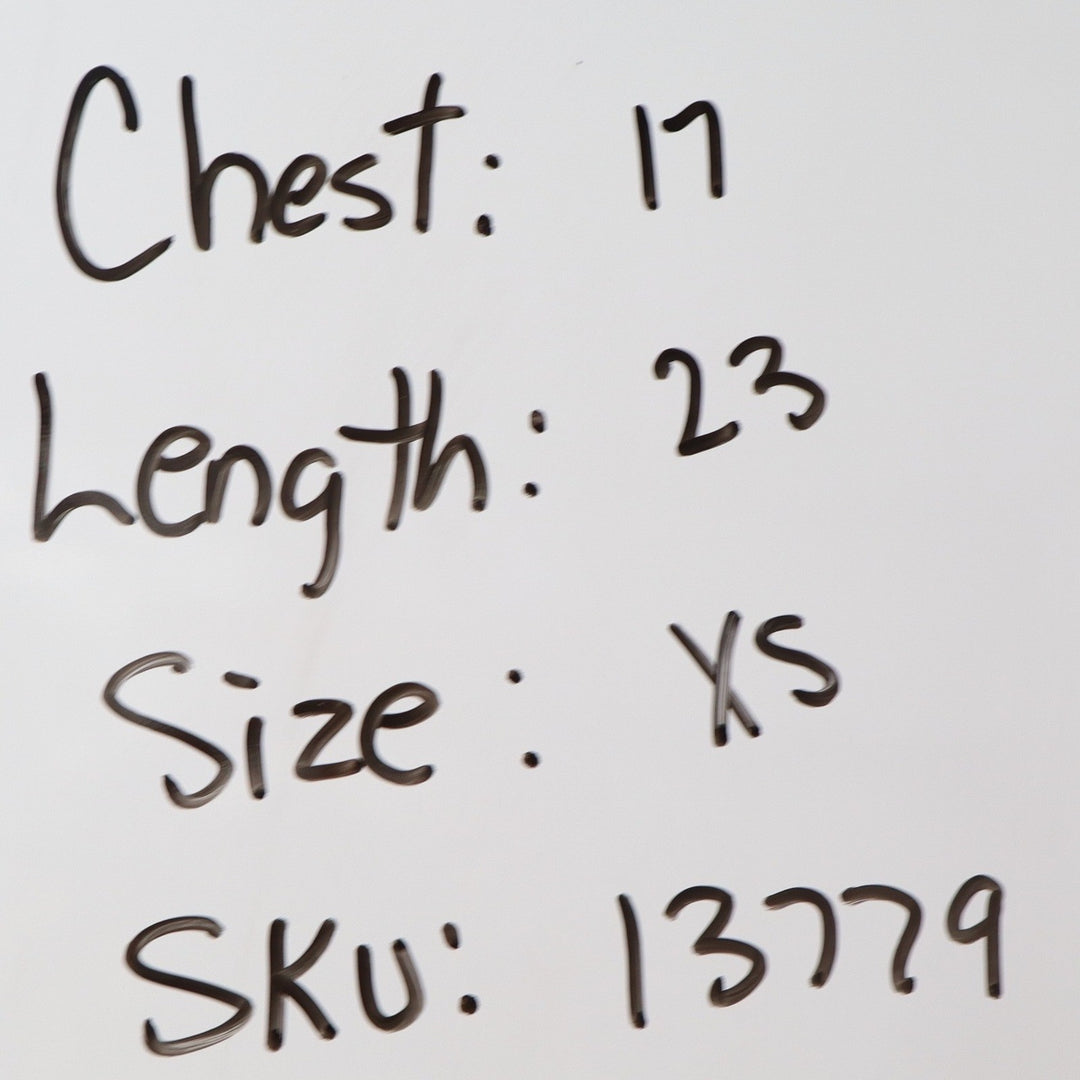 Chest: 17
Length: 23
Size: XS
SKU: 13779